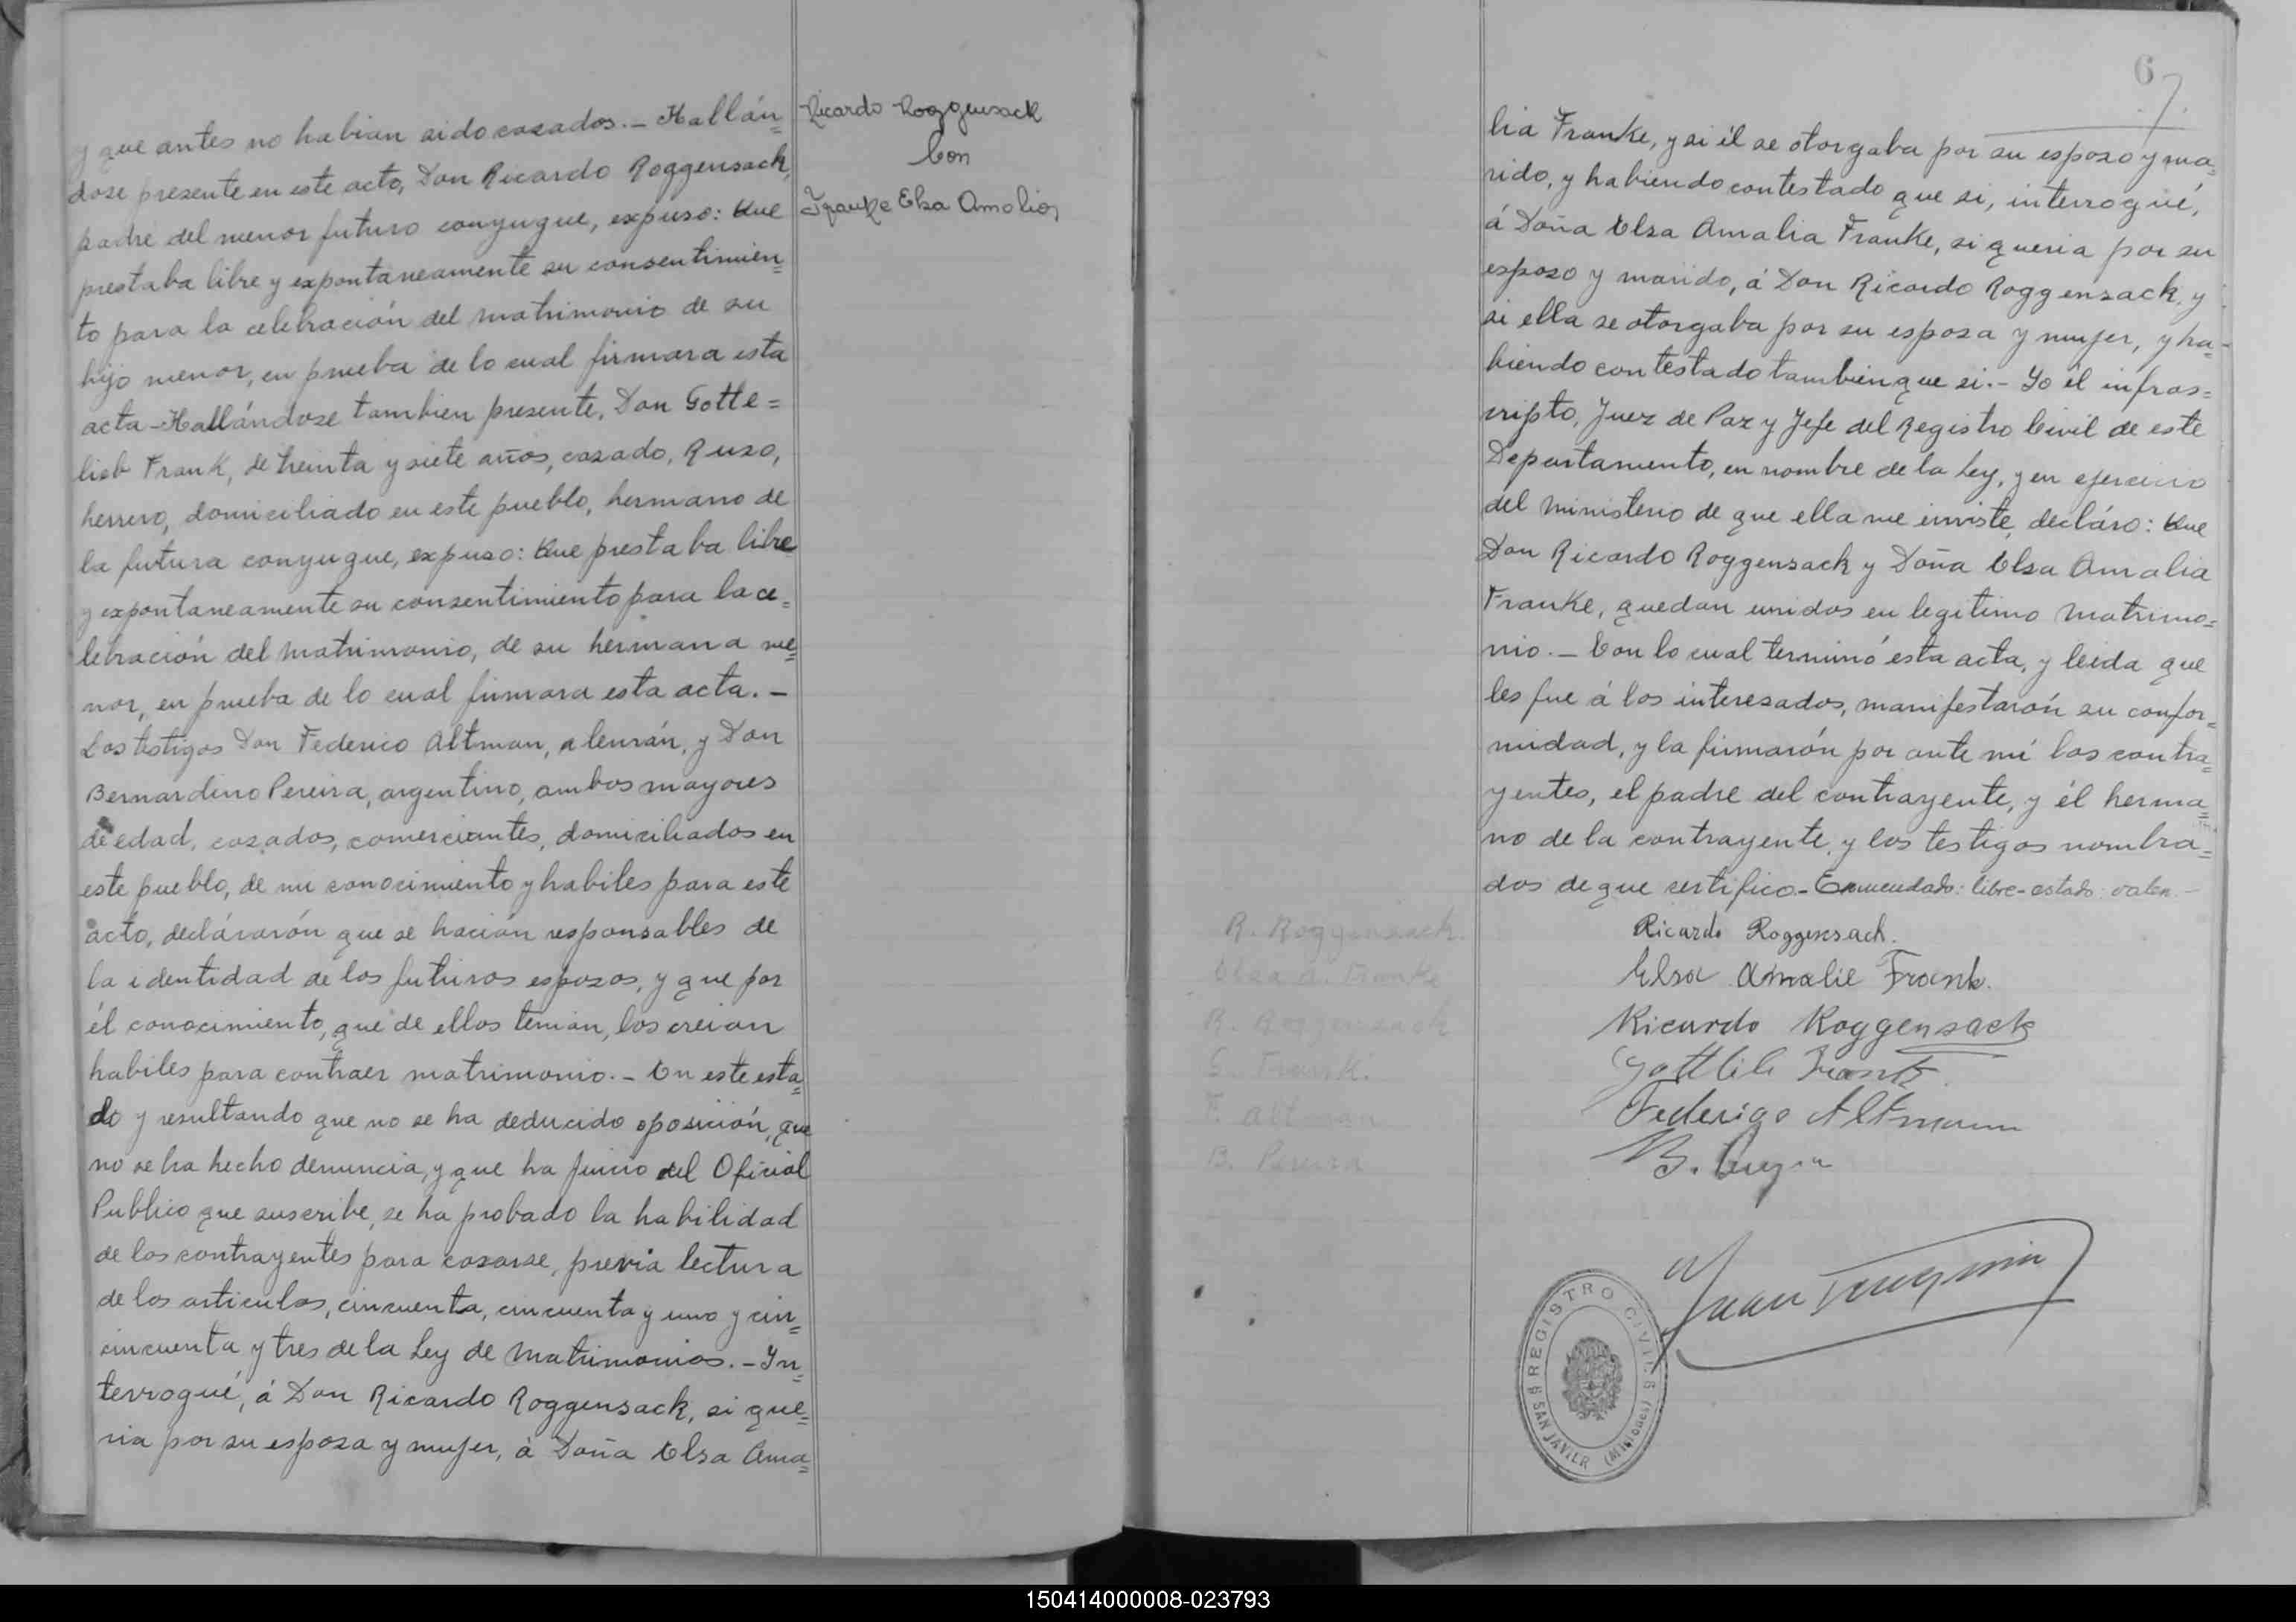 y que antes no habian sido casados. - Hallán=
dose presente en este acto, Don Ricardo Roggensack,
padre del menor futuro conyugue, expuso: Que
prestaba libre y expontaneamente su consentimien=
to para la celebración del matrimonio de su
hijo menor, en prueba de lo cual firmara esta
acta - Hallándose tambien presente, Don Gotte=
lieb Frank, de treinta y siete años, casado, Ruso,
herrero, domiciliado en este pueblo, hermano de
la futura conyugue, expuso: Que prestaba libre
y expontaneamente su consentimiento para la ce=
lebración del matrimonio, de su hermana me=
nor, en prueba de lo cual firmara esta acta. -
Los testigos Don Federico Altman, alemán, y Don
Bernardino Pereira, argentino, ambos mayores
de edad, casados, comerciantes, domiciliados en
este pueblo, de mi conocimiento y habiles para este
acto, declárarón que se hacian responsables de
la identidad de los futuros esposos, y que por
él conocimiento, que de ellos tenian, los creian
habiles para contraer matrimonio. - En este esta=
do y resultando que no se ha deducido oposición, que
no se ha hecho denuncia, y que ha juicio del Oficial
Publico que suscribe, se ha probado la habilidad
de los contrayentes para casarse, previa lectura
de los articulos, cincuenta, cincuenta y uno y cin=
cincuenta y tres de la Ley de Matrimonios. - In=
terrogué, á Don Ricardo Roggensack, si que=
ria por su esposa y mujer, á Doña Elsa Ama=
Ricardo Roggensack
Con
Franke Elsa Amalia
67
lia Franke, y si él se otorgaba por su esposo y ma=
rido, y habiendo contestado que si, interrogué,
á Doña Elsa Amalia Franke, si queria por su
esposo y marido, á Don Ricardo Roggensack, y
si ella se otorgaba por su esposa y mujer, y ha=
biendo contestado tambien que si. - Yo él infras=
cripto, Juez de Paz y Jefe del Registro Civil de este
Departamento, en nombre de la Ley, y en ejercicio
del ministerio de que ella me inviste, decláro: Que
Don Ricardo Roggensack y Doña Elsa Amalia
Franke, quedan unidos en legitimo matrimo=
nio. - Con lo cual terminó esta acta, y leida que
les fue á los interesados, manifestarón su confor=
midad, y la firmarón por ante mi los contra=
yentes, el padre del contrayente, y él herma=
no de la contrayente, y los testigos nombra=
dos de que certifico. - Enmendado: libre - estado: valen. -
R. Roggensack.
Elsa A. Franke
R. Roggensack
G. Frank.
F. Altman
B. Pereira
Ricardo Roggensack.
Elsa Amalie Frank.
Ricardo Roggensack
Gottlib Frank
Federigo Altmann
B.
Juan
REGISTRO CIVIL
SAN JAVIER (Misiones)
150414000008-023793